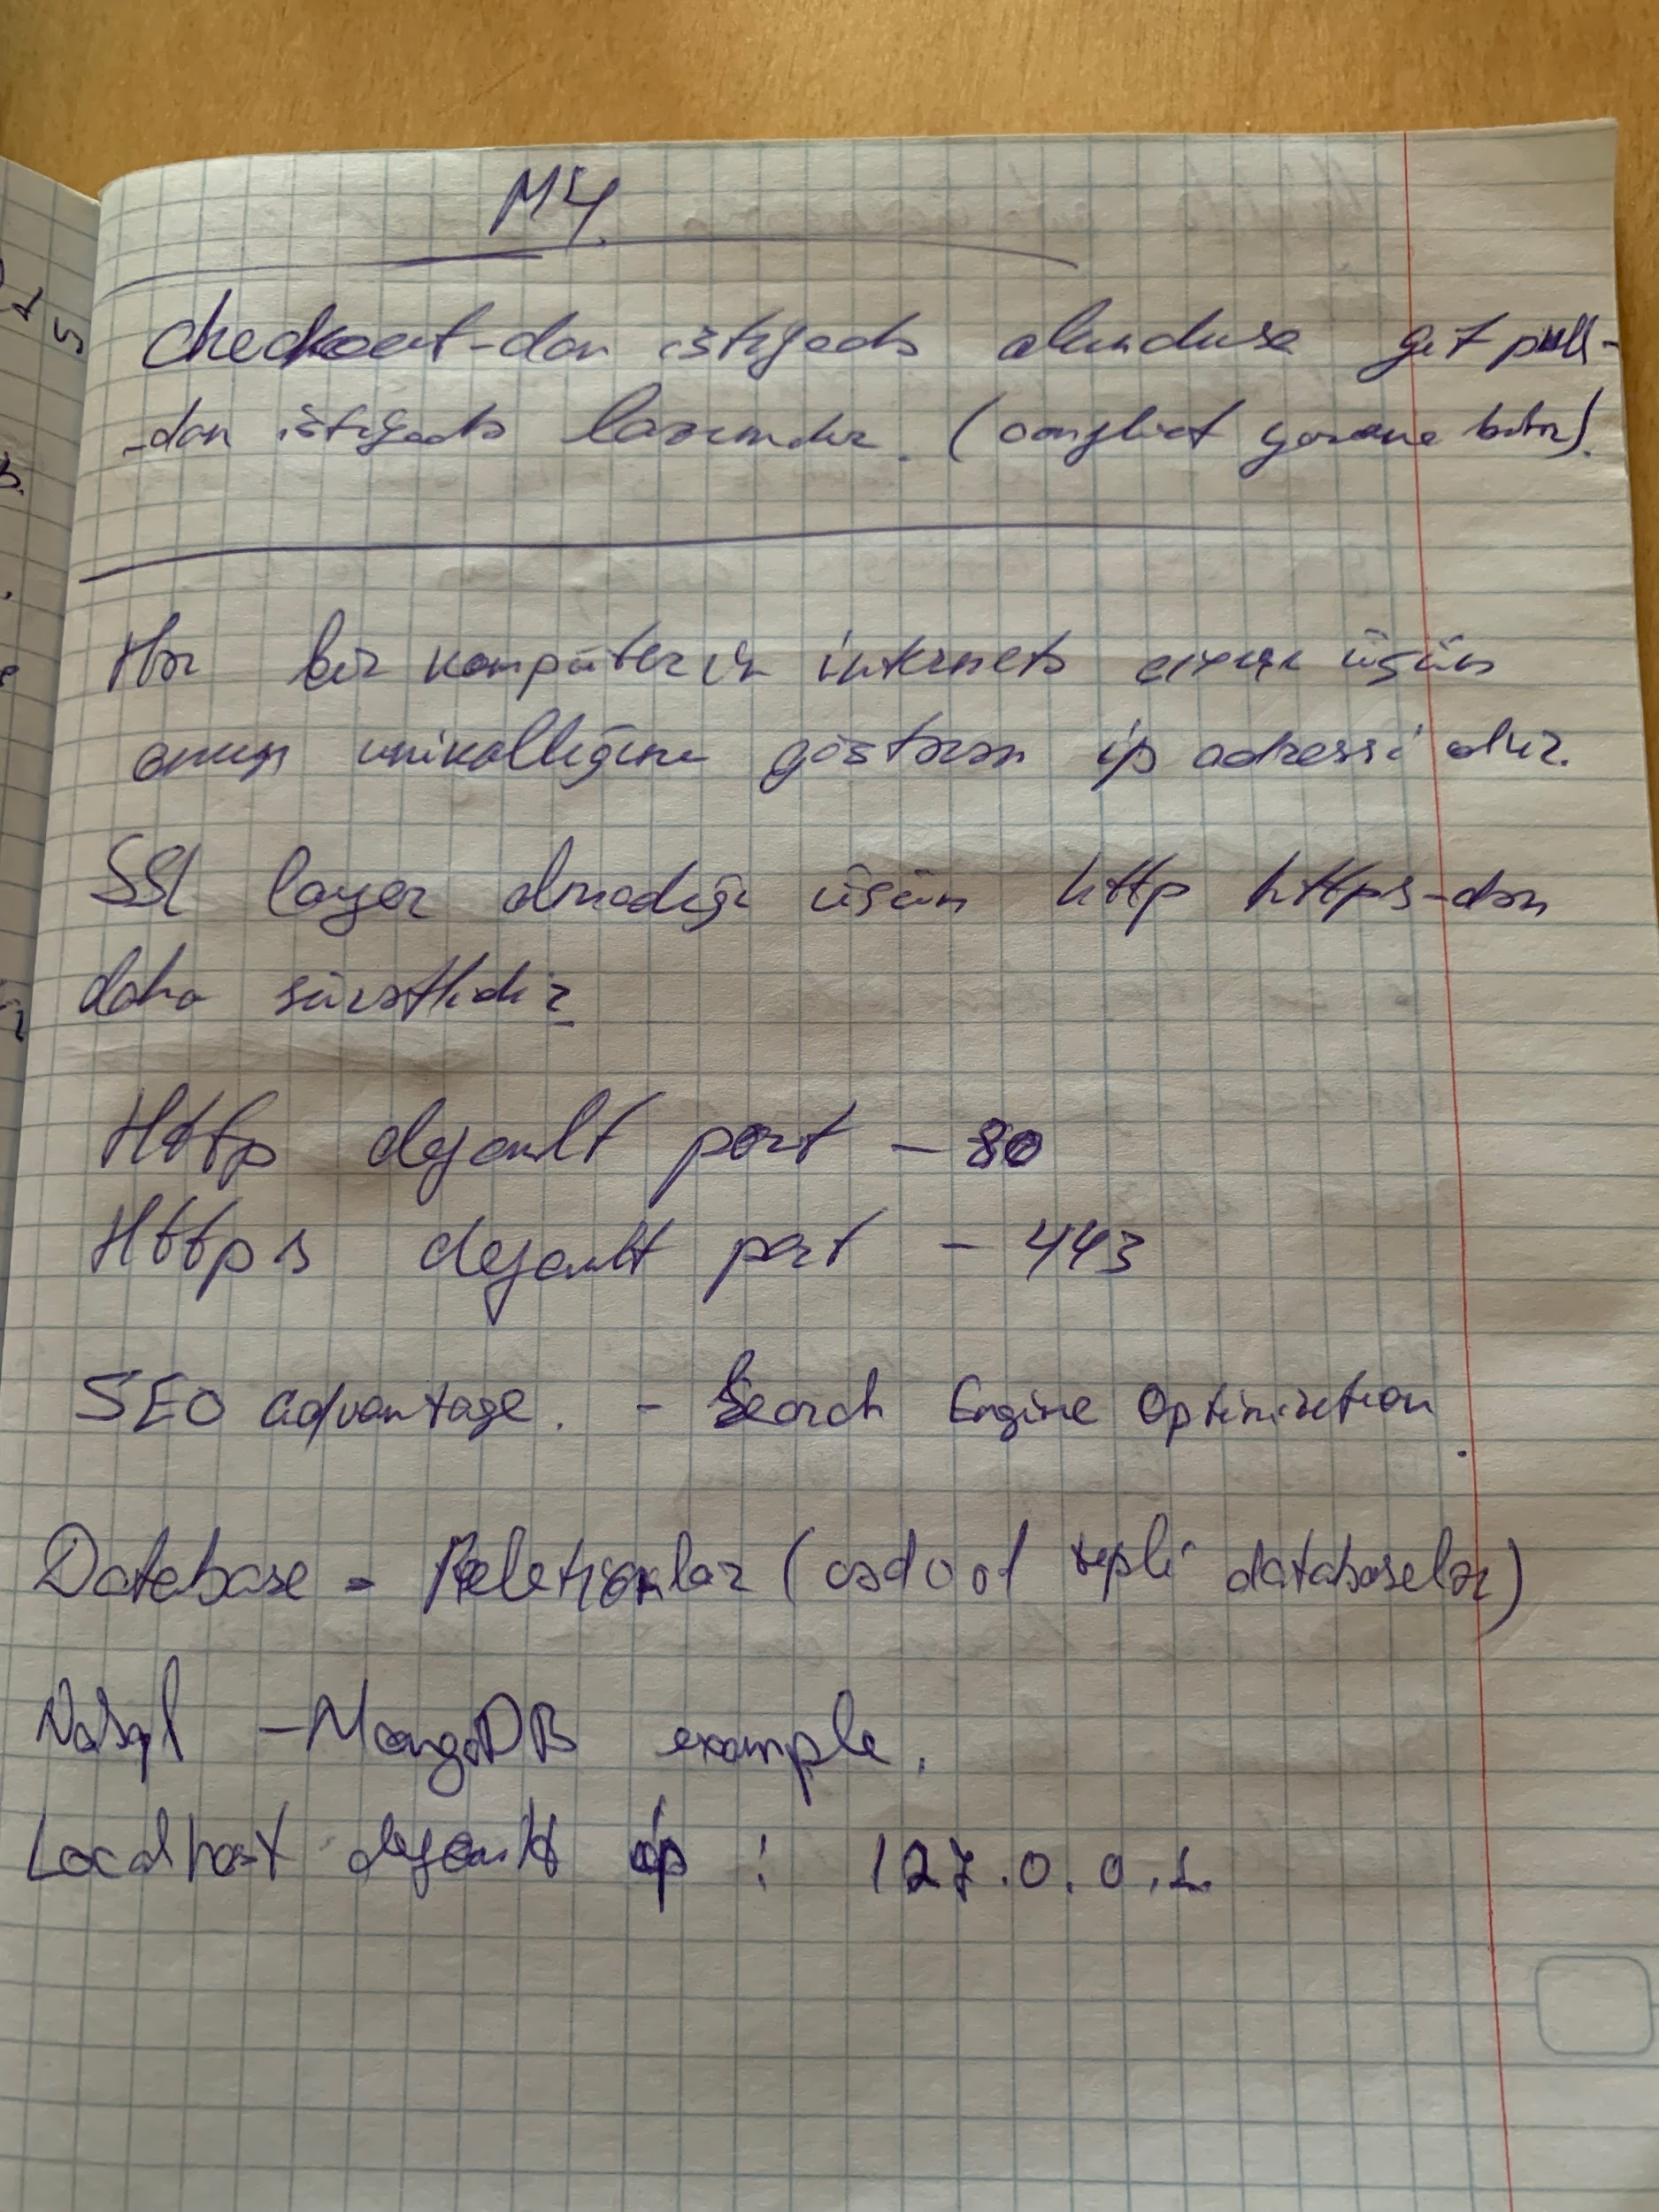 M4
Checkout-dan istifadə olunduqsa git pull-
-dan istifadə lazımdır. (conflict yarana bilər).
Hər bir kompüterin internetə çıxışı üçün
onun unikallığını göstərən ip adressi olur.
SSL layer olmadığı üçün http https-dən
daha sürətlidir
Http default port - 80
Https default port - 443
SEO advantage. - Search Engine Optimization.
Database - Relationlar (cədvəl tipli databaselər)
NoSql - MongoDB example.
Localhost default ip : 127.0.0.1